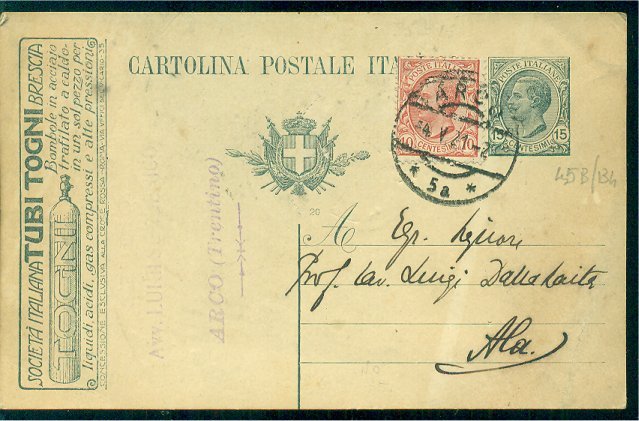 SOCIETÀ ITALIANA TUBI TOGNI BRESCIA
TOGNI
Bombole in acciaio
trafilato a caldo
in un sol pezzo per
liquidi, acidi, gas compressi e alte pressioni
CARTOLINA POSTALE ITA
POSTE ITALIANE
10 CENTESIMI 10
POSTE ITALIANE
15 CENTESIMI 15
ARCO
4.V.21
* 5a *
45B/134
Avv.
ARCO (Trentino)
20
A Egr. Signore
Prof. Cav. Luigi Dalla Laita
Ala.